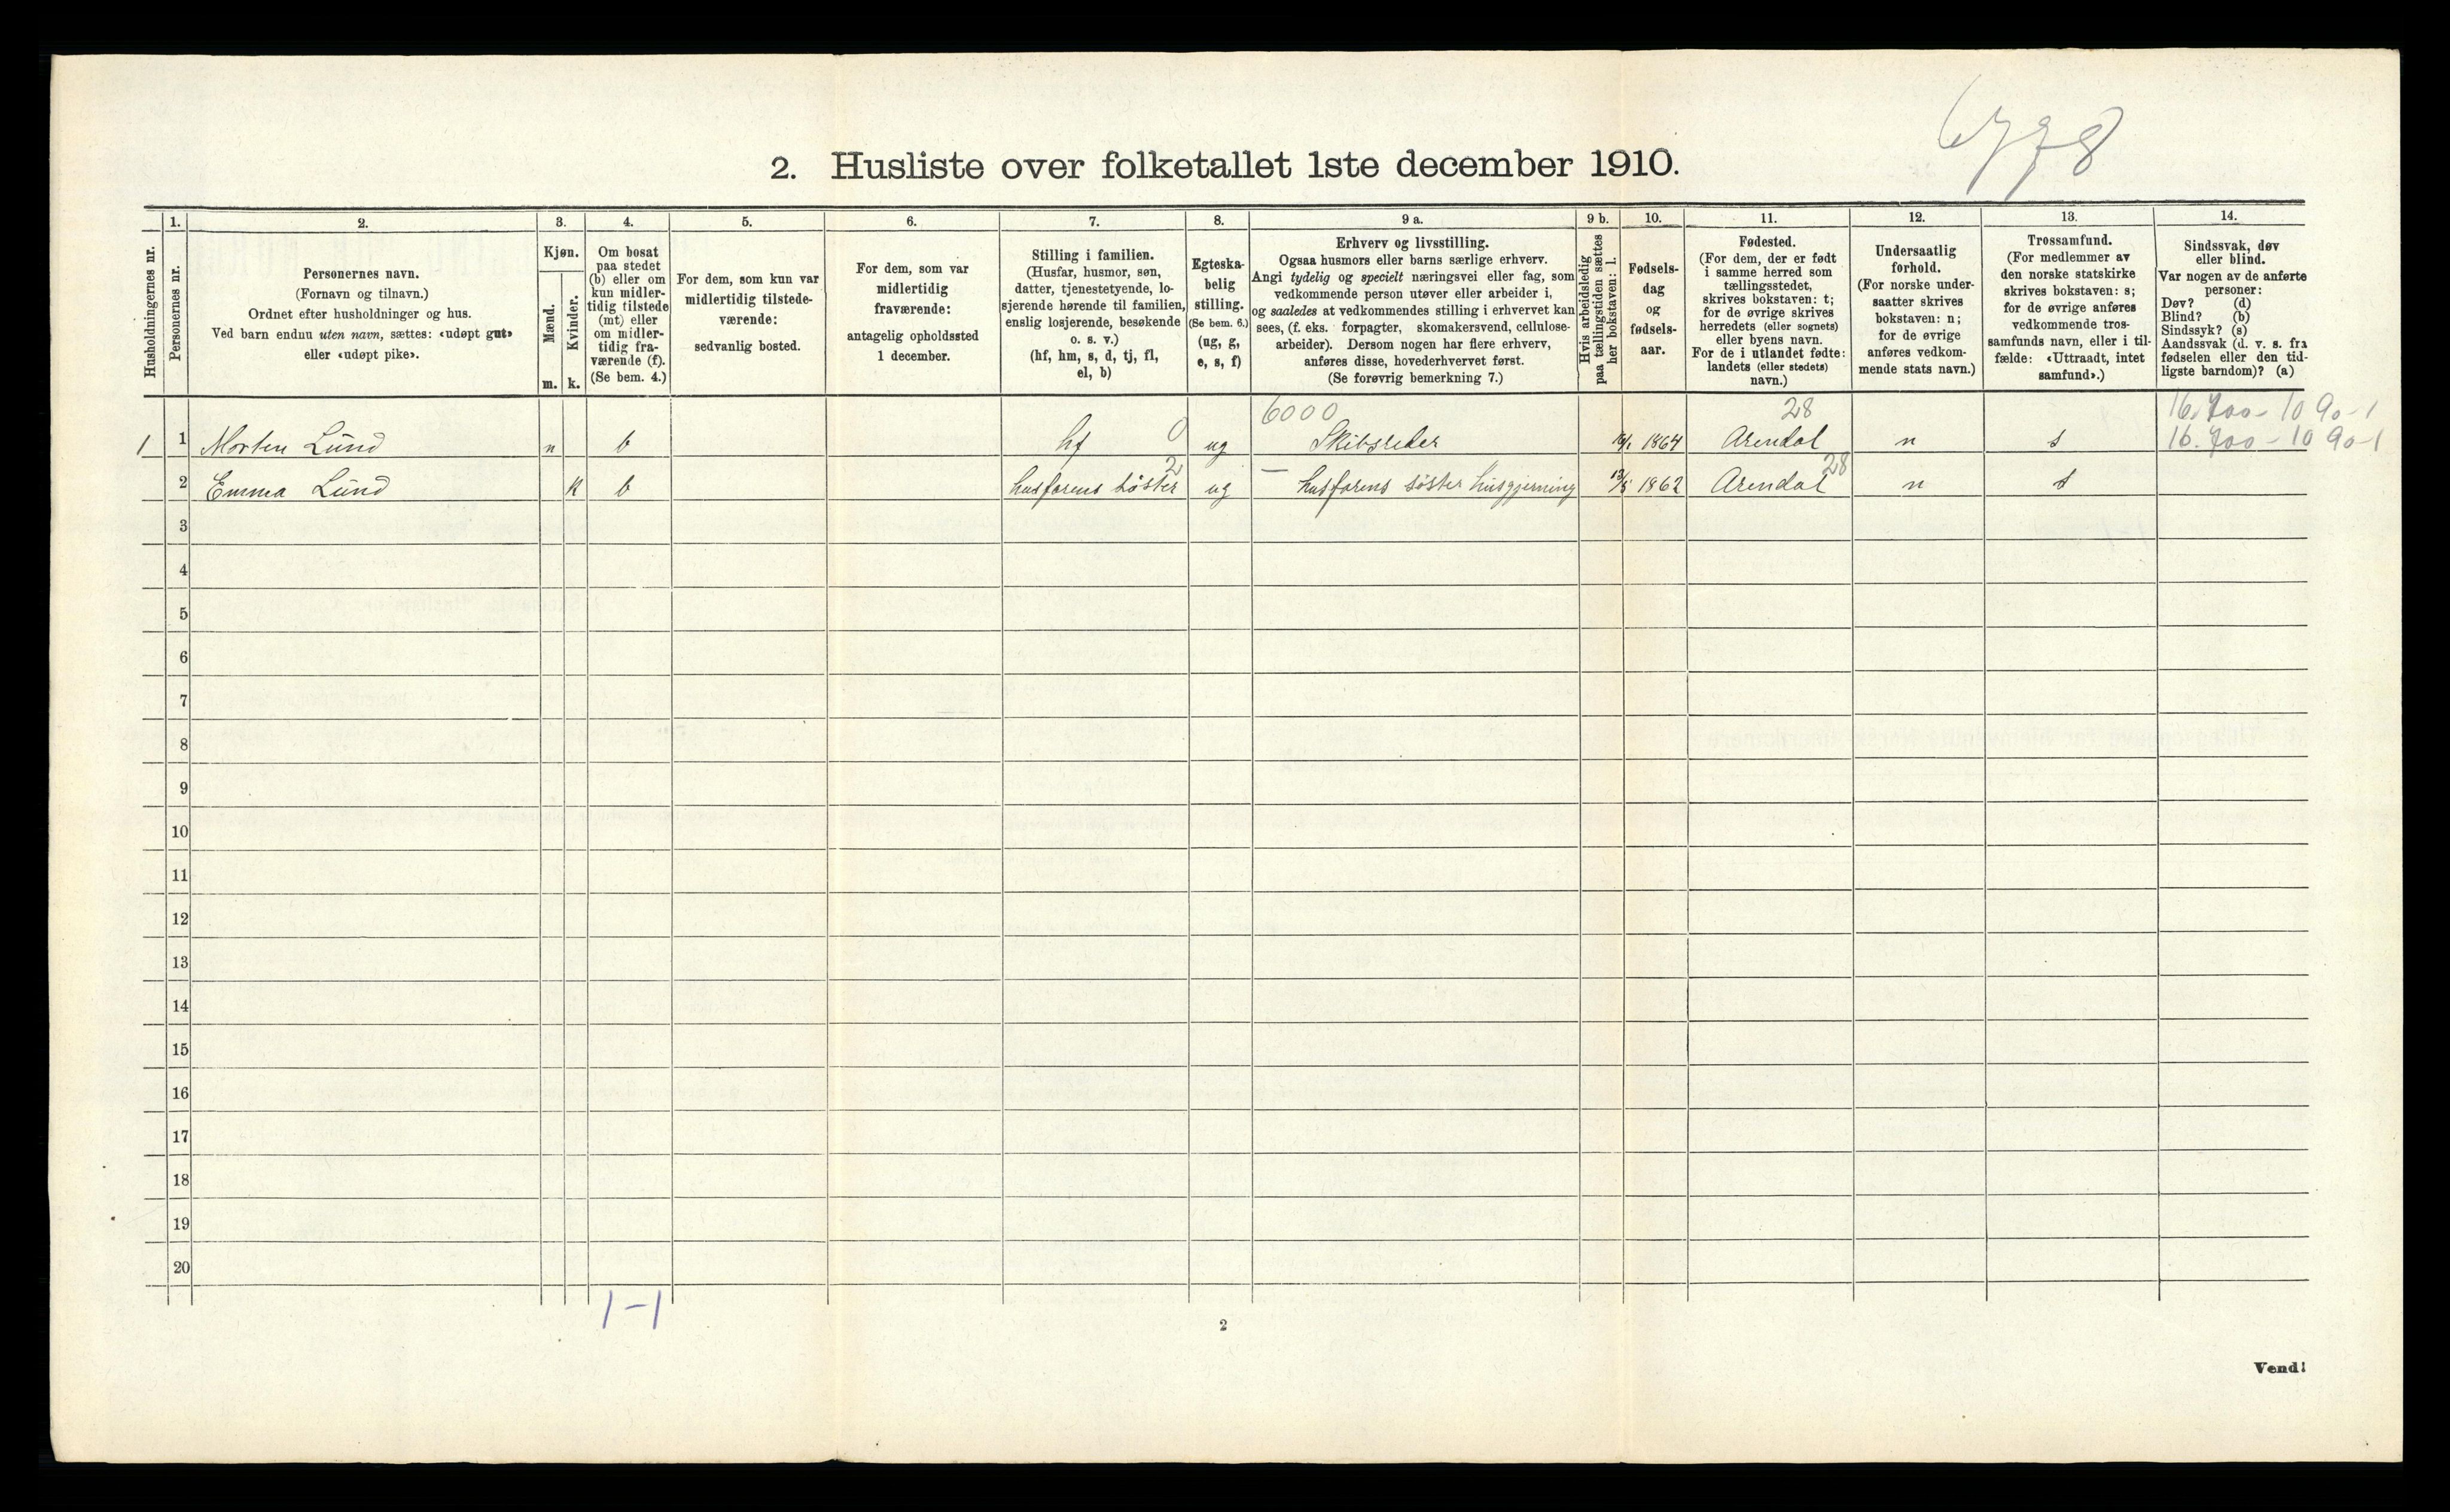 6778
2. Husliste over folketallet 1ste december 1910.
Husholdningernes nr.
1.
Personernes nr.
2.
Personernes navn.
(Fornavn og tilnavn.)
Ordnet efter husholdninger og hus.
Ved barn endnu uten navn, sættes: «udøpt gut»
eller «udøpt pike».
3.
Kjøn.
Mænd.
Kvinder.
m. k.
4.
Om bosat
paa stedet
(b) eller om
kun midler-
tidig tilstede
(mt) eller
om midler-
tidig fra-
værende (f).
(Se bem. 4.)
5.
For dem, som kun var
midlertidig tilstede-
værende:
sedvanlig bosted.
6.
For dem, som var
midlertidig
fraværende:
antagelig opholdssted
1 december.
7.
Stilling i familien.
(Husfar, husmor, søn,
datter, tjenestetyende, lo-
sjerende hørende til familien,
enslig losjerende, besøkende
o. s. v.)
(hf, hm, s, d, tj, fl,
el, b)
8.
Egteska-
belig
stilling.
(Se bem. 6.)
(ug, g,
e, s, f)
9 a.
Erhverv og livsstilling.
Ogsaa husmors eller barns særlige erhverv.
Angi tydelig og specielt næringsvei eller fag, som
vedkommende person utøver eller arbeider i,
og saaledes at vedkommendes stilling i erhvervet kan
sees, (f. eks. forpagter, skomakersvend, cellulose-
arbeider). Dersom nogen har flere erhverv,
anføres disse, hovederhvervet først.
(Se forøvrig bemerkning 7.)
9 b.
Hvis arbeidsledig
paa tællingstiden sættes
her bokstaven: l.
10.
Fødsels-
dag
og
fødsels-
aar.
11.
Fødested.
(For dem, der er født
i samme herred som
tællingsstedet,
skrives bokstaven: t;
for de øvrige skrives
herredets (eller sognets)
eller byens navn.
For de i utlandet fødte:
landets (eller stedets)
navn.)
12.
Undersaatlig
forhold.
(For norske under-
saatter skrives
bokstaven: n;
for de øvrige
anføres vedkom-
mende stats navn.)
13.
Trossamfund.
(For medlemmer av
den norske statskirke
skrives bokstaven: s;
for de øvrige anføres
vedkommende tros-
samfunds navn, eller i til-
fælde: «Uttraadt, intet
samfund».)
14.
Sindssvak, døv
eller blind.
Var nogen av de anførte
personer:
Døv? (d)
Blind? (b)
Sindssyk? (s)
Aandssvak (d. v. s. fra
fødselen eller den tid-
ligste barndom)? (a)
6000 28 16.700-1090-1
1 1 Morten Lund m b hf 0 ug Skibsreder 1864 Arendal n s 16.700-1090-1
2 Emma Lund k b husfarens søster 2 ug — husfarens søster husgjerning 13/5 1862 Arendal 28 n s
3
4
5
6
7
8
9
10
11
12
13
14
15
16
17
18
19
20
1-1
2
Vend!